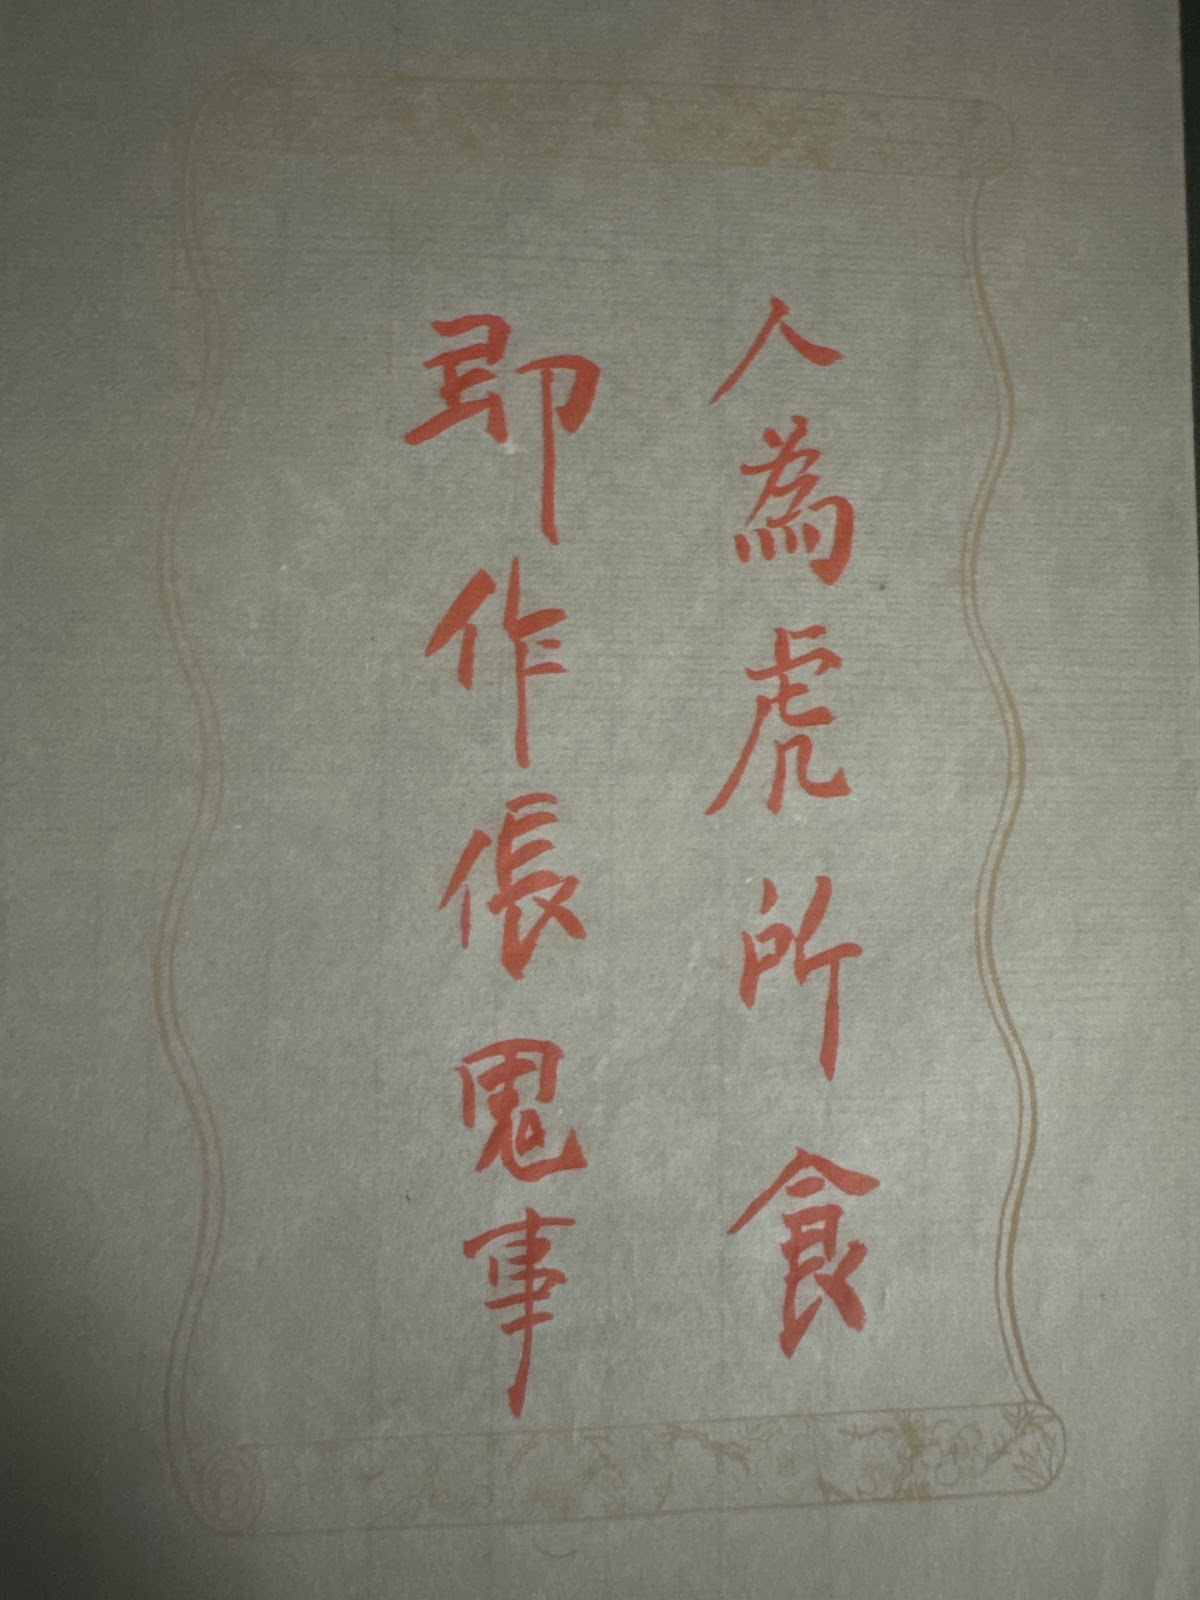 人為虎所食
即作倀鬼事